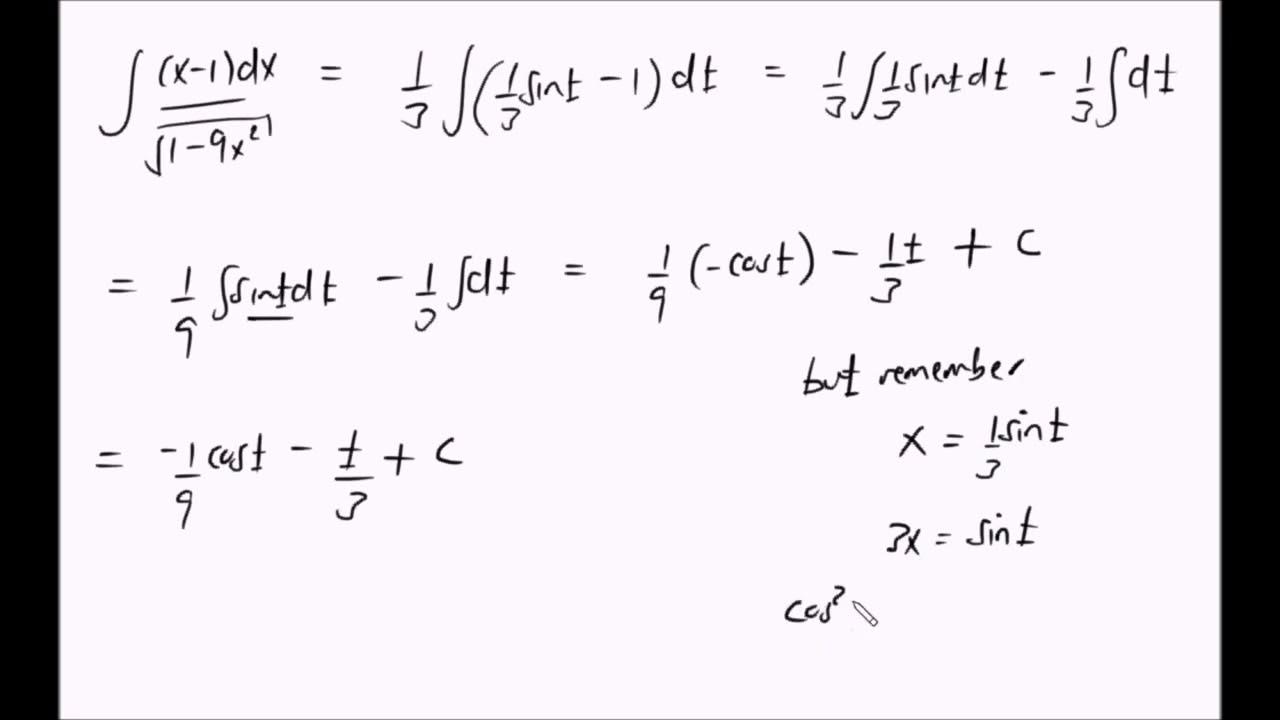 ∫ (x-1)dx / √(1-9x²) = 1/3 ∫(1/3 sint - 1) dt = 1/3 ∫ 1/3 sint dt - 1/3 ∫ dt
= 1/9 ∫ sint dt - 1/3 ∫ dt = 1/9 (-cost) - 1/3 t + c
but remember
x = 1/3 sint
= -1/9 cost - t/3 + c
3x = sint
cos²